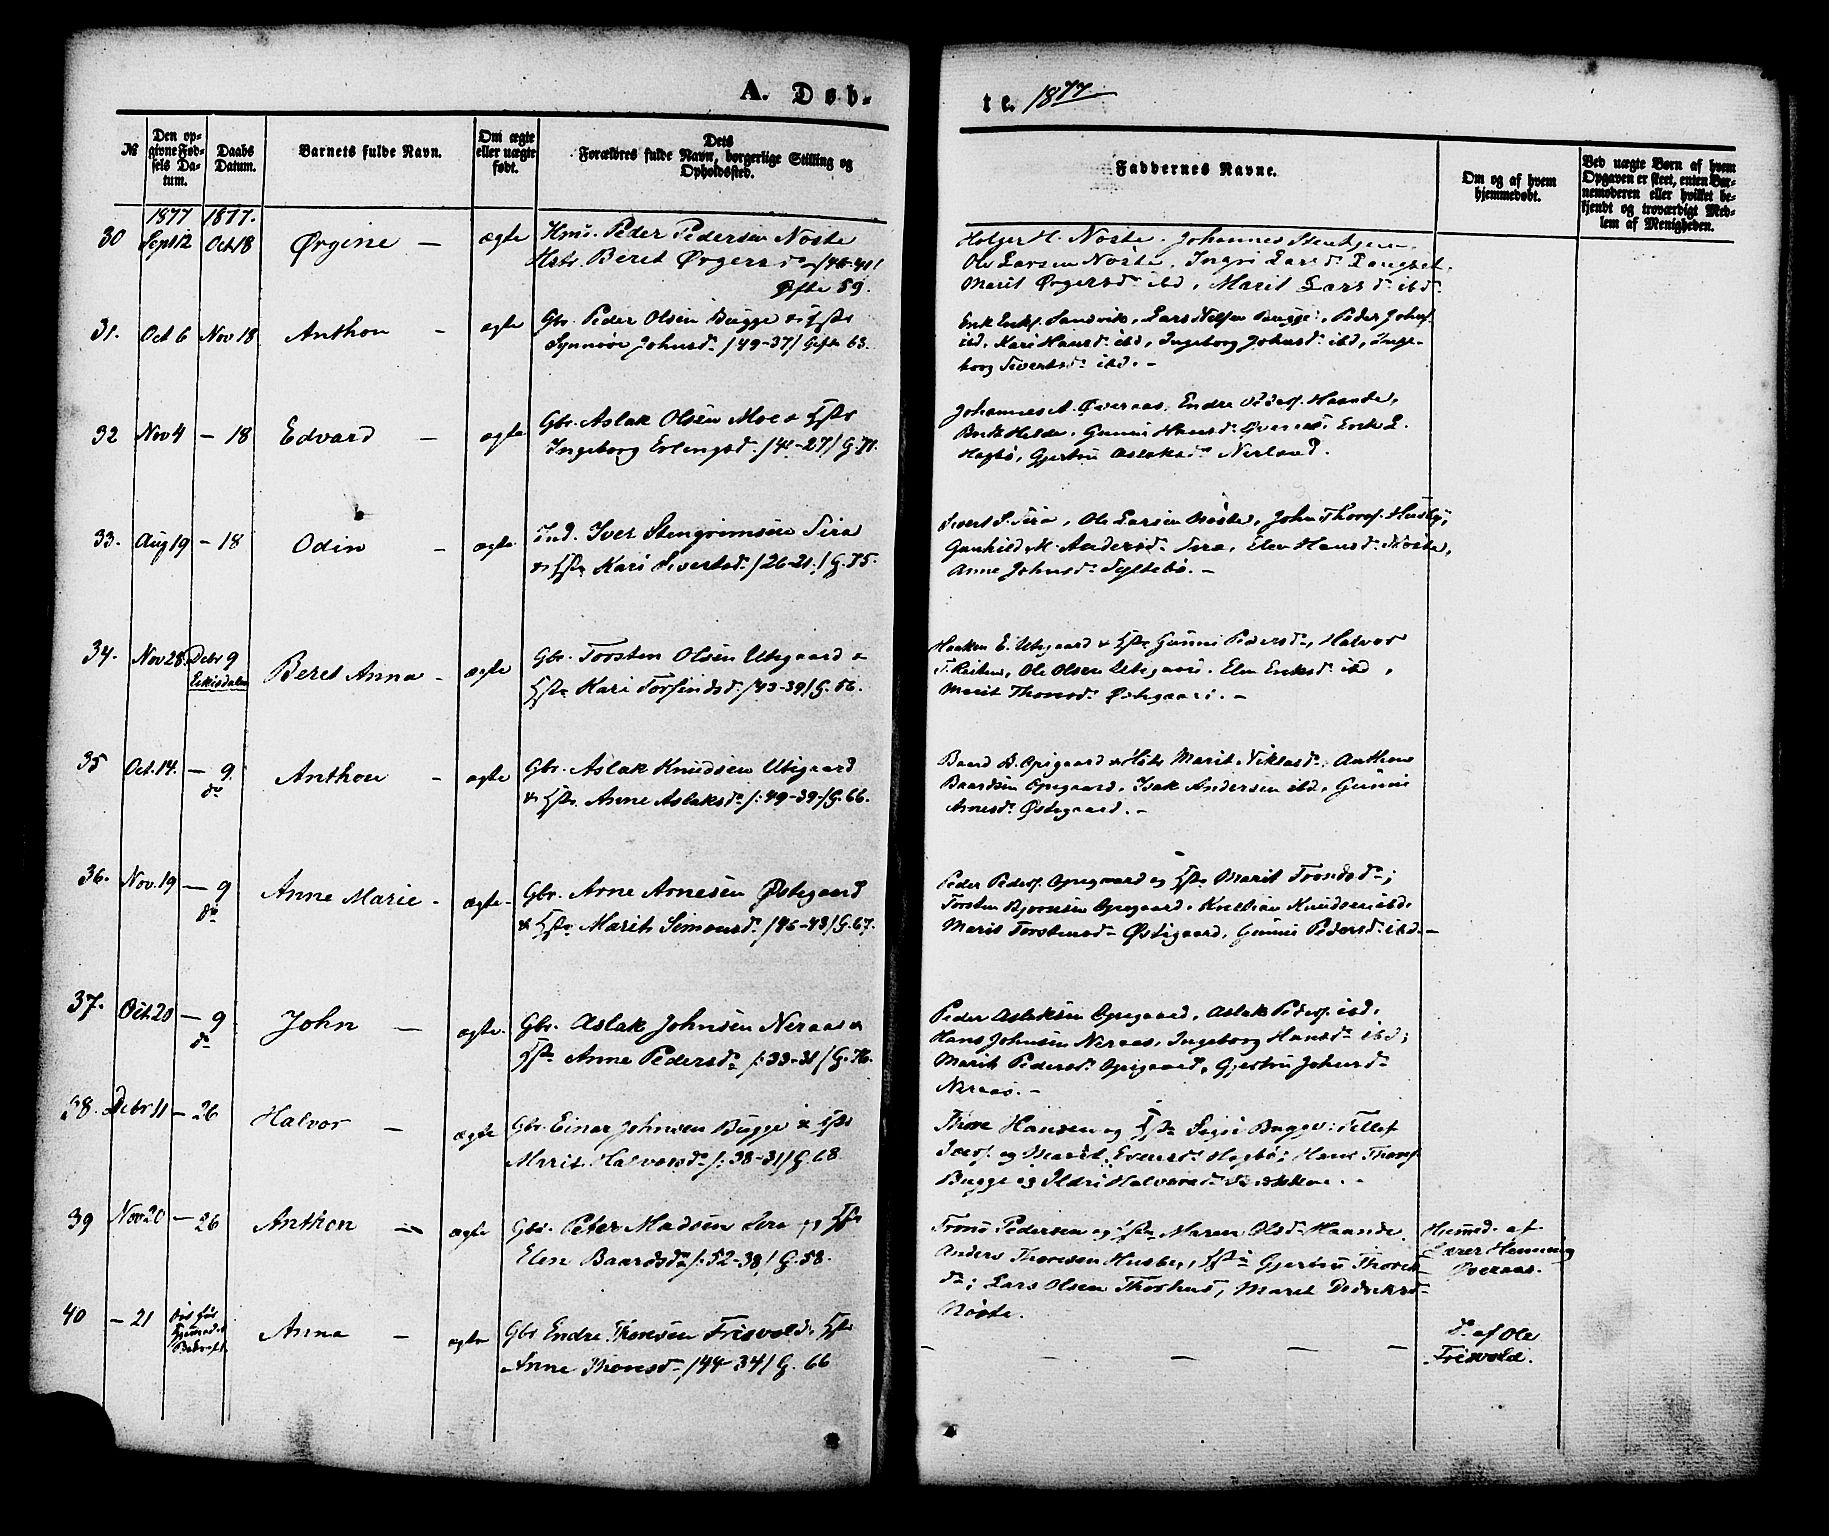 A. Døb-
te. 1877
№
Den opgivne Fødsels Datum.
Daabs Datum.
Barnets fulde Navn.
Om ægte eller uægte født.
Dets Forældres fulde Navn, borgerlige Stilling og Opholdssted.
Faddernes Navne.
Om og af hvem hjemmedøbt.
Ved uægte Børn af hvem Opgaven er skeet, enten Barnemoderen eller hvilket bekjendt og troværdigt Medlem af Menigheden.
1877 1877.
30 Sept 12 Oct 18 Ørgine — ægte
Peder Pedersen Nøste
Beret Ørgers
59.
Holger H. Nøste. Johannes
Ole Larsen Nøste, Ingri Larsd.
Marit Ørgersd. ibd, Marit Larsd. ibd.
31. Oct 6 Nov 18 Anthon - ægte
Gbr. Peder Olsen Bugge &
Synnøve Johnsd. /49-37/ Gift 63.
Erik Eriks. Sandvik, Lars Nilsen Bugge, Peder Johns.
ibd, Kari Hansd. ibd, Ingeborg Johnsd. ibd, Inge-
borg Sivertsd. ibd. -
32 Nov 4 — 18 Edvard — ægte
Gbr. Aslak Olsen Moe &
Ingeborg Erlingsd. /41-27/ G. 71.
Johannes A. Øveraas, Endre Haande,
Gunni Hansd. Øveraas, Erik E.
Hagbø, Gjertru Aslaksd. Nerland.
33. Aug 19 - 18 Odin - ægte
Ind. Iver Stengrimsen Sira
& Kari Sivertsd. /26-21./ G. 75.
Sivert S. Sira, Ole Larsen Nøste, John Thores. Husby,
Gunhild M. Andersd. Sira, Elen Hansd. Nøste,
Anne Johnsd. Syltebø. -
34. Nov 28. Debr 9 Eikisdalen Beret Anna - ægte
Gbr. Torsten Olsen Utigaard &
Kari Torfindsd. /43-39/ G. 56.
Haaken E. Utigaard & Gunni Pedersd., Halvor
Ole Olsen Utigaard. Elen Eriksd. ibd,
Marit Thoresd. Østigaard. -
35 Oct. 14. — 9. do Anthon - ægte
Gbr. Aslak Knudsen Utigaard
& Anne Aslaksd. /: 49-39/ G. 66.
Baard B. Opigaard & Marit Niklasd. Anthon
Baardsen Opigaard. Isak Andersen ibd, Gunni
Arnesd. Østigaard. -
36. Nov. 19 — 9 do Anne Marie - ægte -
Gbr. Arne Arnesen Østigaard
& Marit Simonsd. /46-43/ G. 67.
Peder Peders. Opigaard og Marit Trondsd.;
Torsten Bjørnsen Opigaard, Kristian Knudsen ibd.
Marit Torstensd. Østigaard, Gunni Pedersd. ibd. -
37. Oct. 20 — 9 do John — ægte.
Gbr. Aslak Johnsen Neraas &
Anne Pedersd. /: 33-31/ G. 76.
Peder Aslaksen Opigaard, Aslak Peders. ibd,
Hans Johnsen Neraas, Ingeborg Hansd. ibd;
Marit Pedersd. Opigaard, Gjertru Johnsd.
Neraas. -
38. Debr 11 — 26 Halvor — ægte
Gbr. Einar Johnsen Bugge &
Marit Halvorsd. /: 38-31/ G. 68.
Thore Hansen og Sigri Bugge; Tellef
og Marit Evensd. Hagbø; Hans Thores.
Bugge og Ildri Halvorsd.
39 Nov 20 — 26 Anthon — ægte
Gbr. Peter Madsen Sira og
Elen Baardsd. /: 52-38/ G. 58.
Trond Pedersen og Maren Olsd. Haande.
Anders Thoresen Husby, Gjertru Thores-
d.; Lars Olsen Thorhus, Marit Didriksd.
Nøste.
Hjemmed. af
Lærer Henning
Øveraas.
40 — 21 Anna — ægte
Gbr. Endre Thoresen Frisvold &
Anne Thoresd. /44-34/ G. 66
— — — — —
do. af Ole
Frisvold.